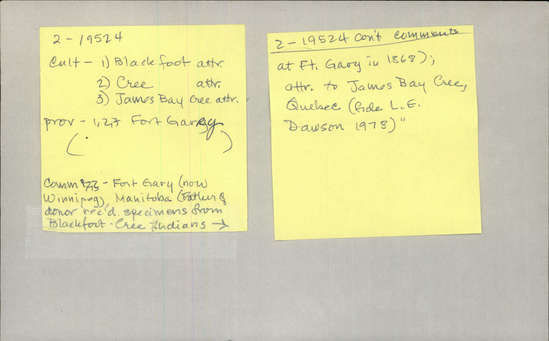 2-19524
Cult - 1) Blackfoot attr.
2) Cree attr.
3) James Bay Cree attr.
prov - 1,2,3 Fort Garry
( )
Comm - Fort Gary (now
Winnipeg), Manitoba (Father of
donor rec'd. specimens from
Blackfoot - Cree Indians →
2-19524 con't comments
at Ft. Gary in 1868);
attr. to James Bay Cree,
Quebec (fide L.E.
Dawson 1978)"